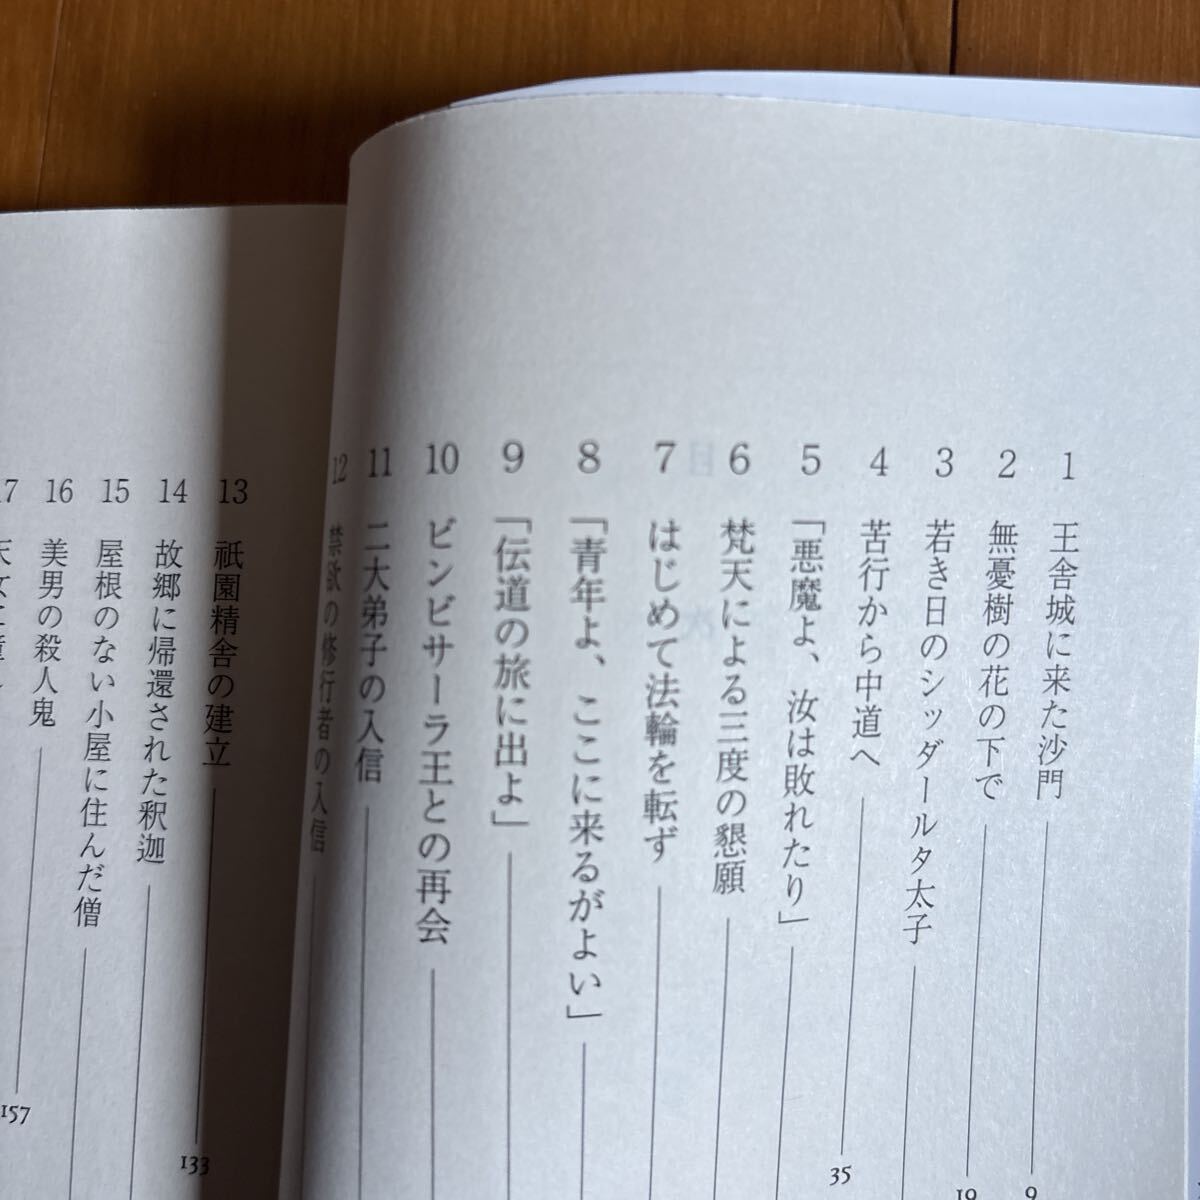 1 王舎城に来た沙門 9
2 無憂樹の花の下で 19
3 若き日のシッダールタ太子
4 苦行から中道へ 35
5 「悪魔よ、汝は敗れたり」
6 梵天による三度の懇願
7 はじめて法輪を転ず
8 「青年よ、ここに来るがよい」
9 「伝道の旅に出よ」
10 ビンビサーラ王との再会
11 二大弟子の入信
12 禁欲の修行者の入信
13 祇園精舎の建立 133
14 故郷に帰還された釈迦
15 屋根のない小屋に住んだ僧
16 美男の殺人鬼 157
17 天女に